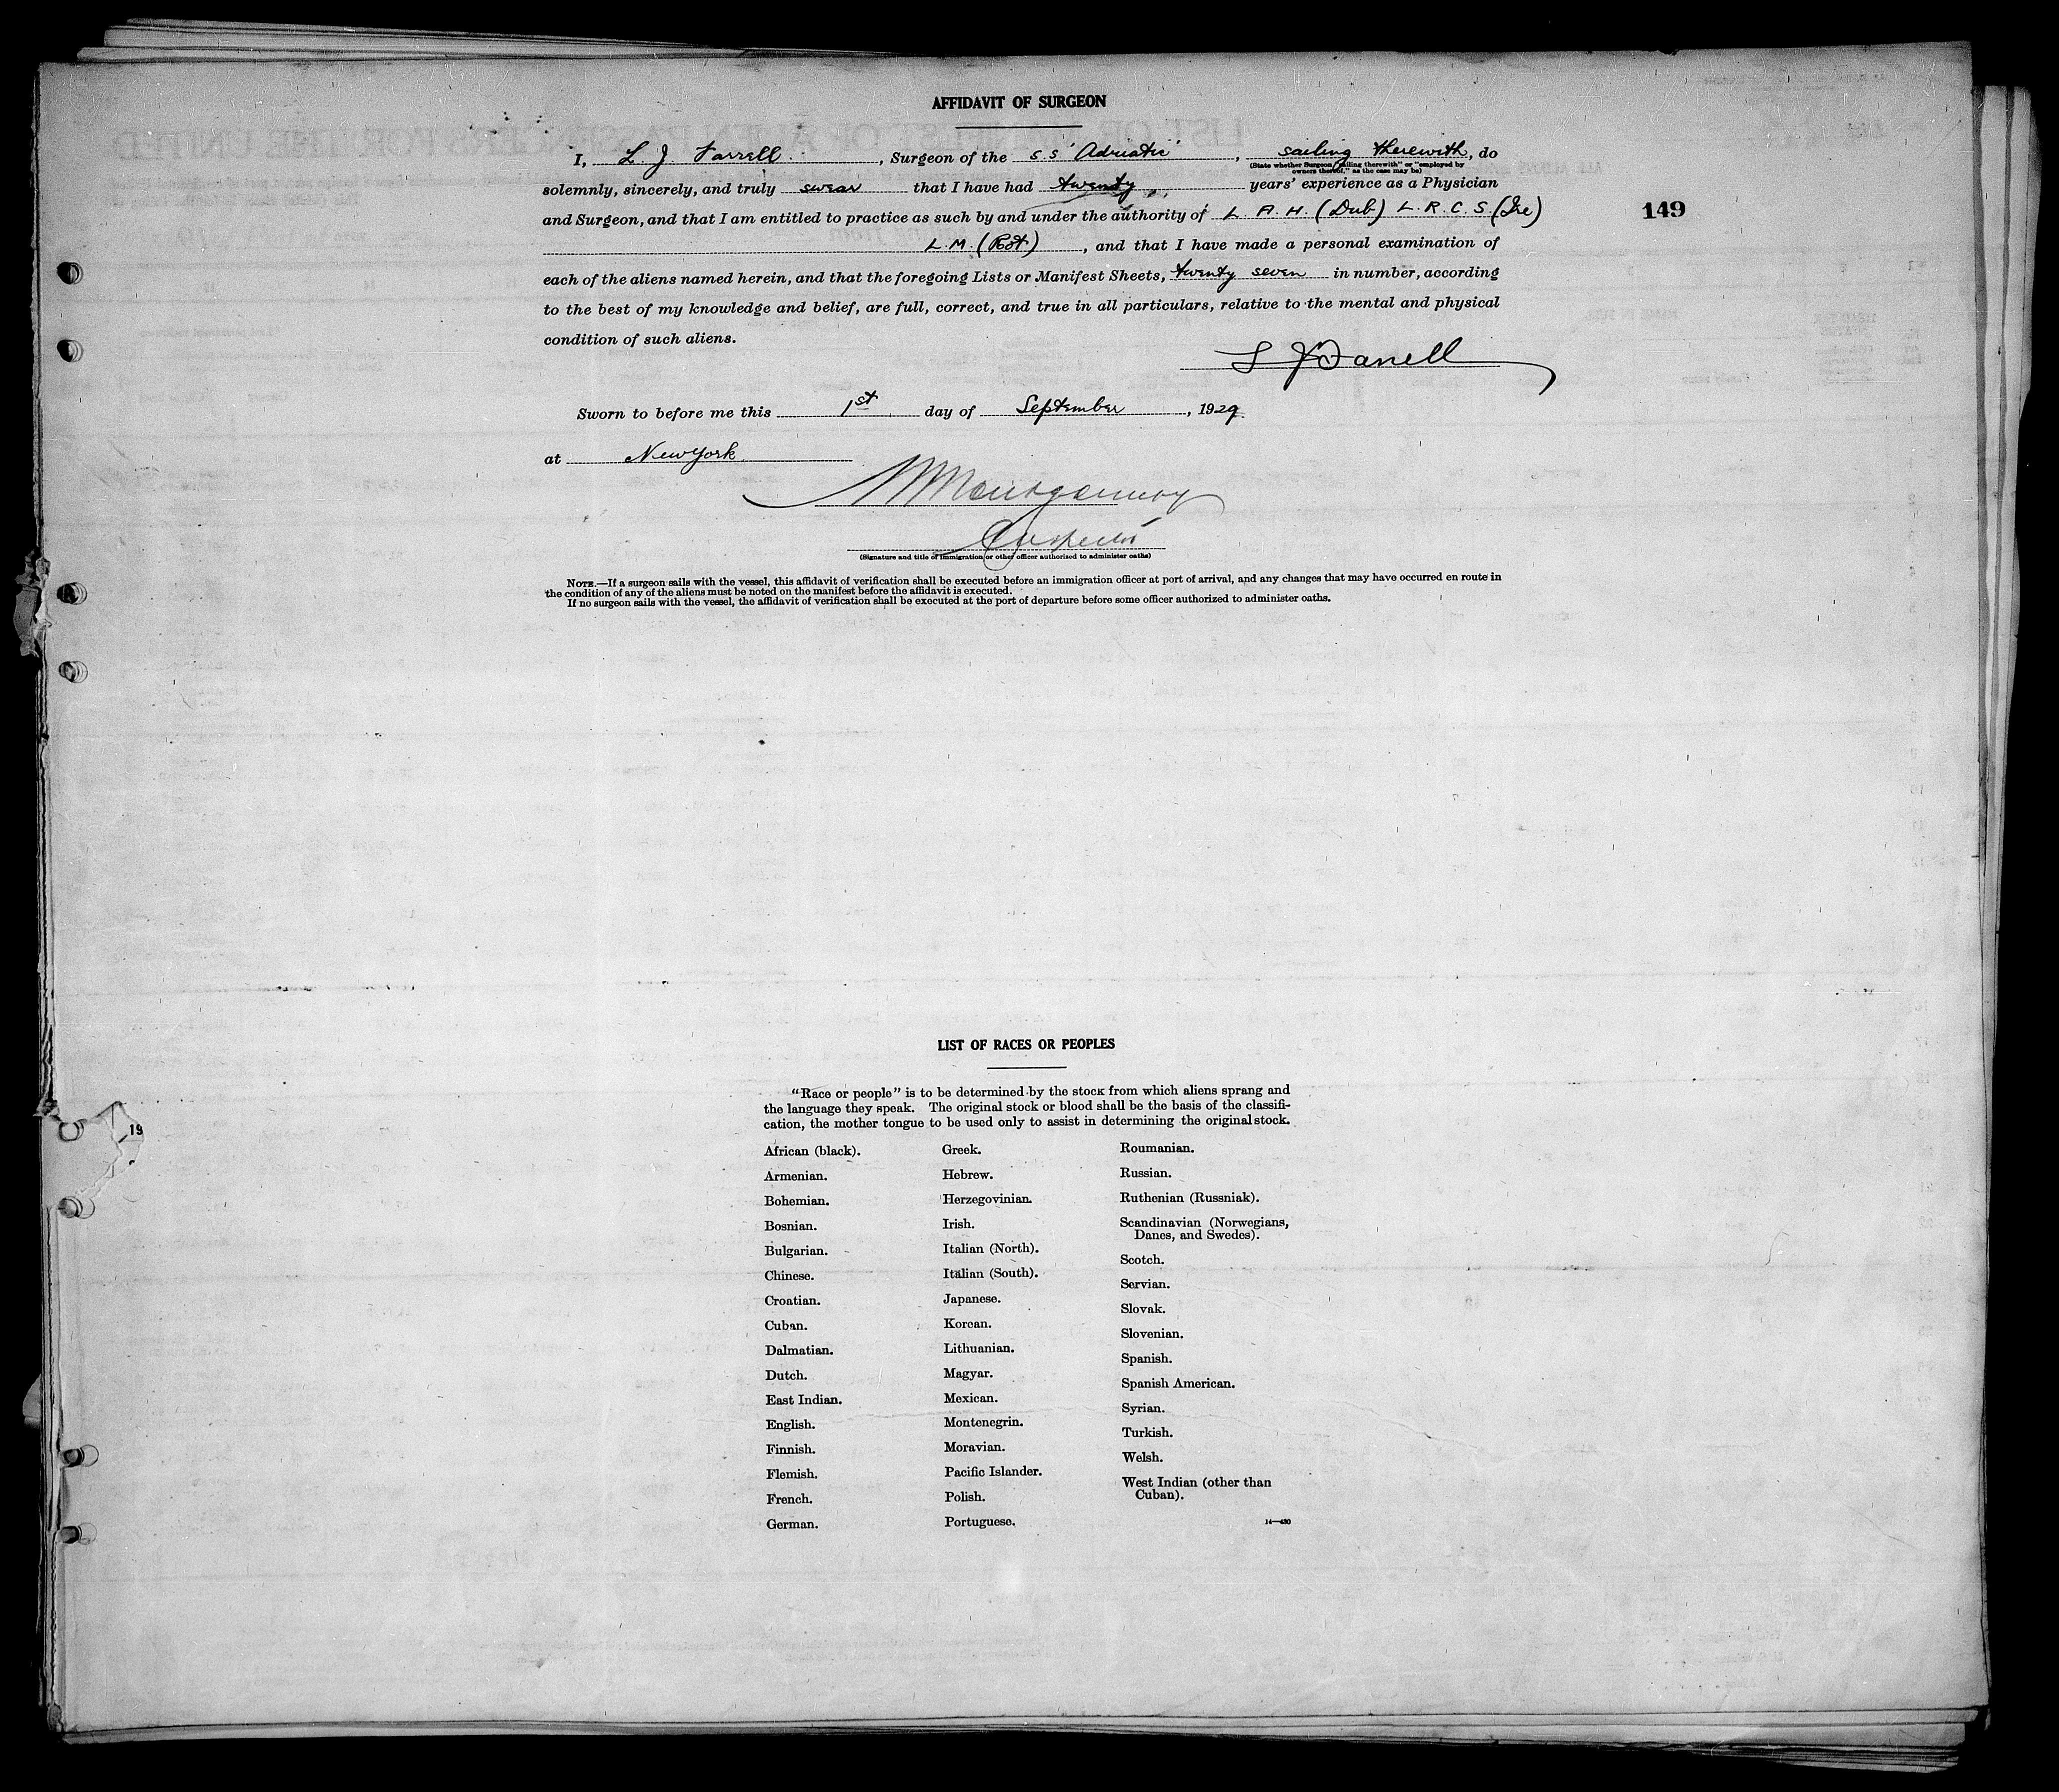 AFFIDAVIT OF SURGEON
I, L J Farrell, Surgeon of the S.S. "Adriatic", sailing therewith, do
(State whether Surgeon "sailing therewith" or "employed by
owners thereof," as the case may be)
solemnly, sincerely, and truly swear that I have had twenty years' experience as a Physician
and Surgeon, and that I am entitled to practice as such by and under the authority of L. A. H. (Dub) L. R. C. S. (Ire)
149
L. M. (Rot), and that I have made a personal examination of
each of the aliens named herein, and that the foregoing Lists or Manifest Sheets, twenty seven in number, according
to the best of my knowledge and belief, are full, correct, and true in all particulars, relative to the mental and physical
condition of such aliens.
L J Farrell
Sworn to before me this 1st day of September, 1929.
at New York
Montgomery
Inspector
(Signature and title of immigration or other officer authorized to administer oaths)
NOTE.—If a surgeon sails with the vessel, this affidavit of verification shall be executed before an immigration officer at port of arrival, and any changes that may have occurred en route in
the condition of any of the aliens must be noted on the manifest before the affidavit is executed.
If no surgeon sails with the vessel, the affidavit of verification shall be executed at the port of departure before some officer authorized to administer oaths.
LIST OF RACES OR PEOPLES
"Race or people" is to be determined by the stock from which aliens sprang and
the language they speak. The original stock or blood shall be the basis of the classifi-
cation, the mother tongue to be used only to assist in determining the original stock.
19
African (black).
Armenian.
Bohemian.
Bosnian.
Bulgarian.
Chinese.
Croatian.
Cuban.
Dalmatian.
Dutch.
East Indian.
English.
Finnish.
Flemish.
French.
German.
Greek.
Hebrew.
Herzegovinian.
Irish.
Italian (North).
Italian (South).
Japanese.
Korean.
Lithuanian.
Magyar.
Mexican.
Montenegrin.
Moravian.
Pacific Islander.
Polish.
Portuguese.
Roumanian.
Russian.
Ruthenian (Russniak).
Scandinavian (Norwegians,
Danes, and Swedes).
Scotch.
Servian.
Slovak.
Slovenian.
Spanish.
Spanish American.
Syrian.
Turkish.
Welsh.
West Indian (other than
Cuban).
14—430